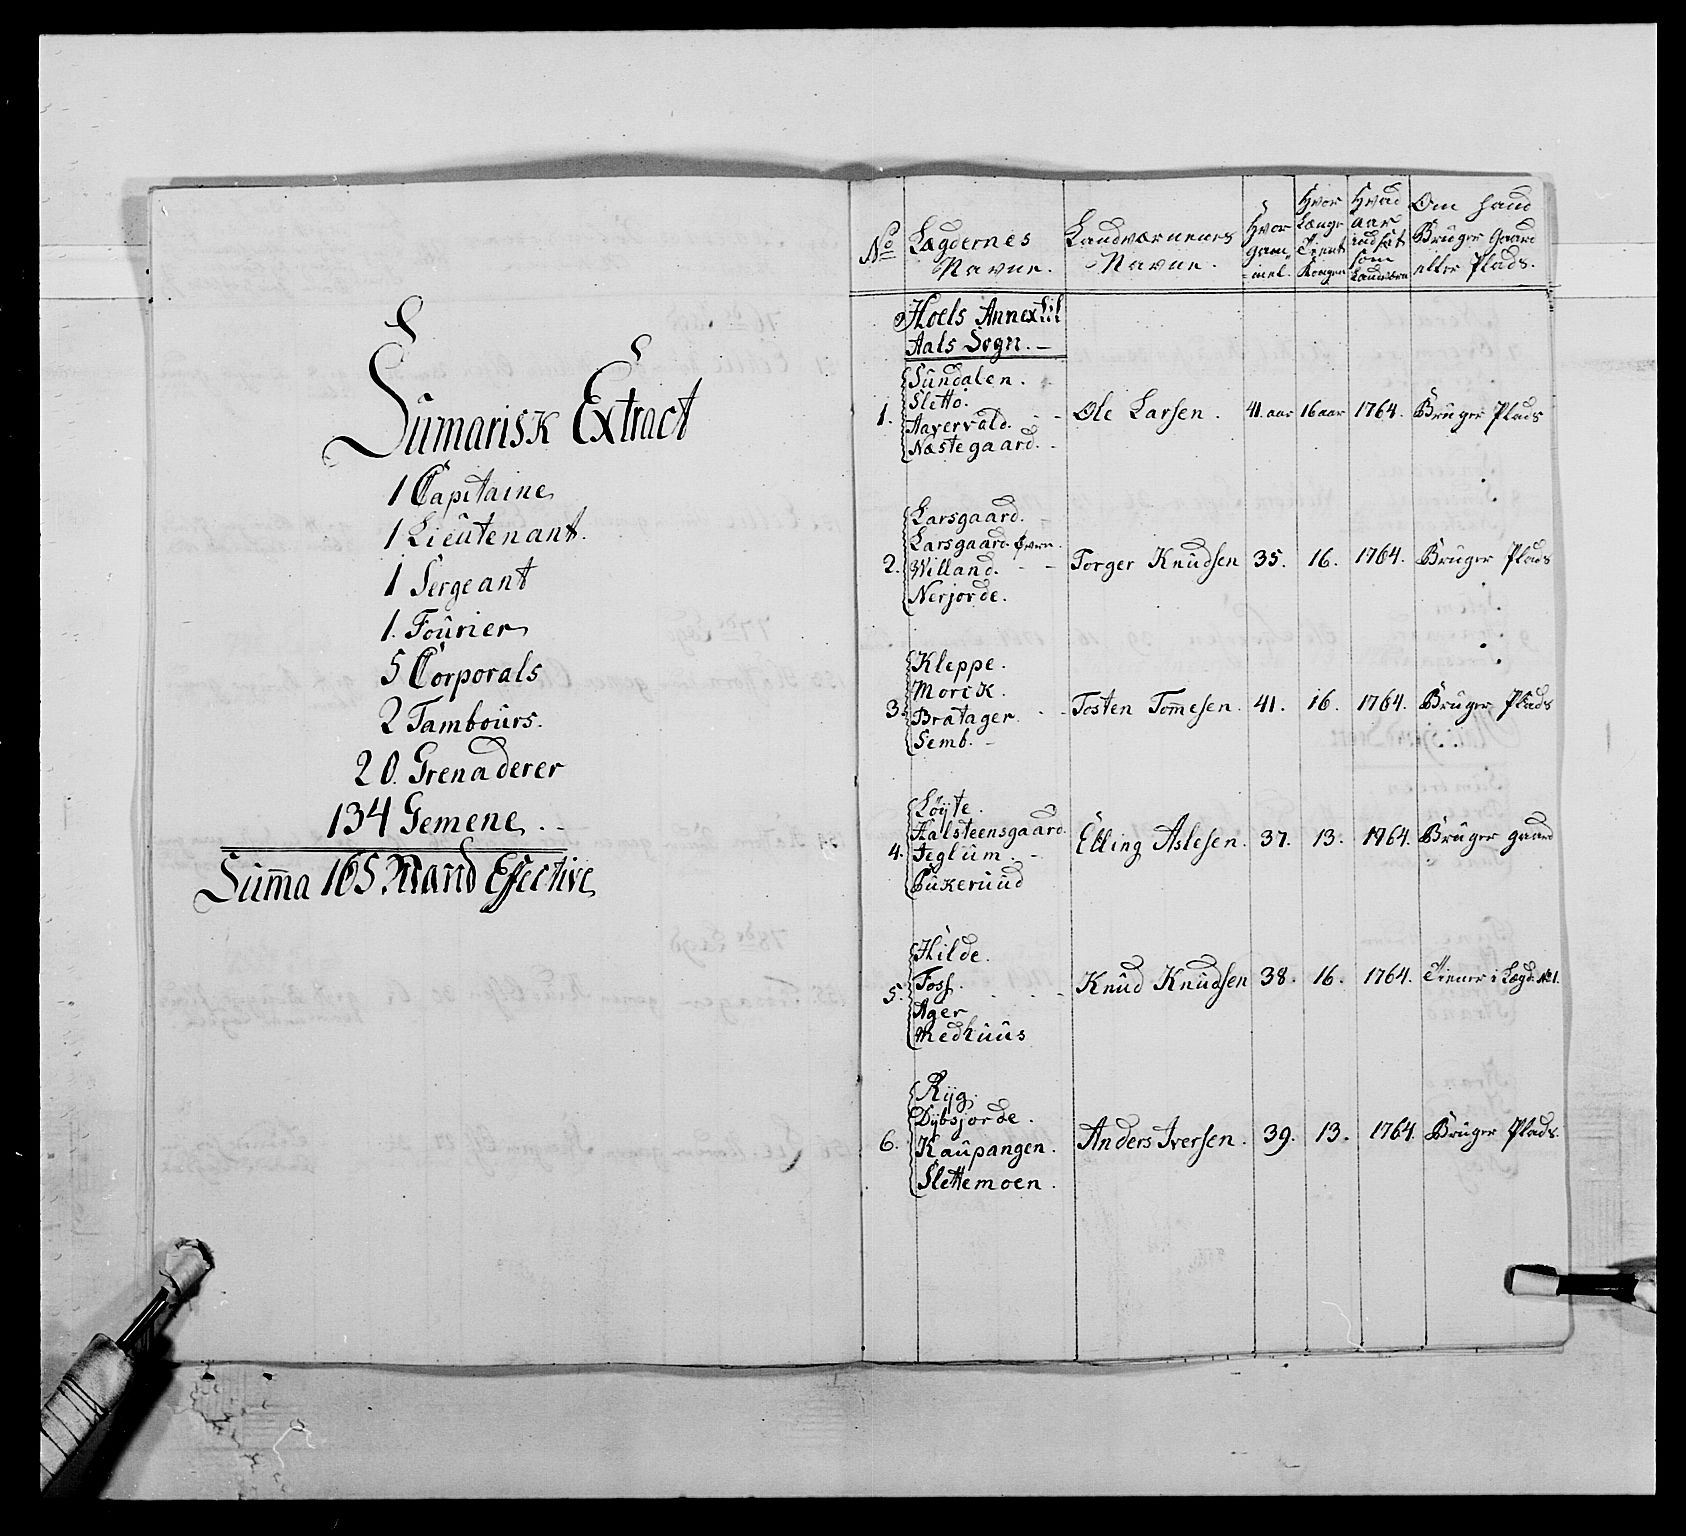 Sum̄arisk Extract
1 Capitaine
1 Lieutenant.
1 Sergeant
1. Fourier
5 Corporals
2 Tambours.
20. Grenaderer
134 Gemene. -
Sum̄a 165. Mand Effective
No Lægdernes Navne. Landværnenes Navne. Hvor gammel. Hvor Længe Tient Kongen Hvad aar indsat som Landværn Om hand Bruger Gaard eller Plads.
Hoels Annex til
Aals Sogn. -
Sundalen.
Sletto.
1. Aavervald. - - Ole Larsen. 41 aar 16 aar 1764. Bruger Plads
Næstegaard. -
Larsgaard.
Larsgaard øvre.
2. Villand. - - Torger Knudsen 35. 16. 1764. Bruger Plads
Nerjorde.
Kleppe.
Morck.
3. Bratager. - - Tosten Tom̄esen. 41. 16. 1764. Bruger Plads
Semb. -
Løyte.
Halsteensgaard.
4. Teglum. - Elling Aslesen. 37. 13. 1764. Bruger gaard
Pukeruud
Hilde.
5. Foss. - - Knud Knudsen 38. 16. 1764. Tiener i Lægd. No 1.
Ager
Medhuus
Ryg.
Dybsjorde.
6. Kaupangen. Anders Iversen. 39. 13. 1764. Bruger Plads.
Slettemoen.